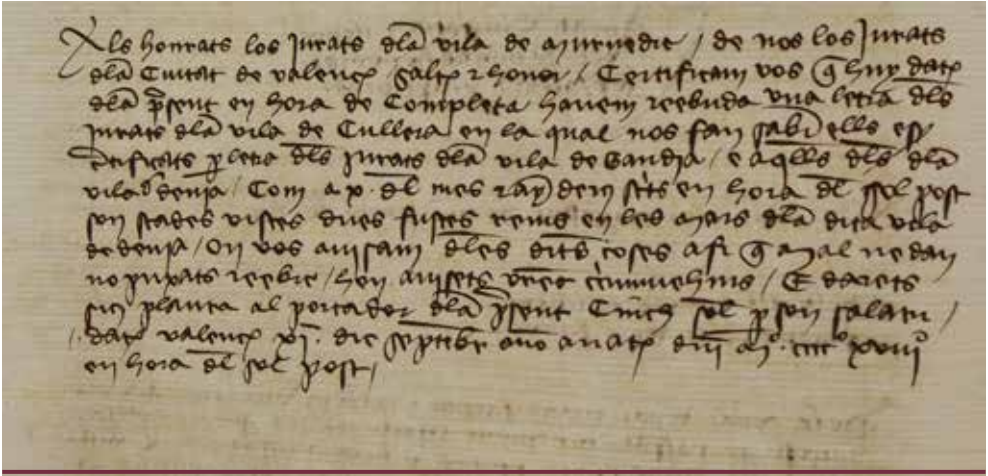 Als honrats los Jurats dla vila de Murvedre / de nos los Jurats
dla Ciutat de valenc salut τ honor / Certificam vos q huy dat
dla psent en hora de Completa havem reebuda una letra dls
Jurats dla vila de Cullera en la qual nos fan sabr ells esser
certificats p letra dls Jurats dla vila de Gandia / e aqlls dls dla
vila d denia / Com a x. dl mes τ any dejus scrits en hora dl sol post
son stades vistes dues fustes rems en les mars dla dita vila
de denia / On vos avisam dles dits coses afi q mal ne dan
no puxats reebre / hon avisets vres circunvehins / E darets
sis planta al portador dla psent Cinch sol p son salari /
. dat valenc xi. die septebr ano a nat dni Mº. ccccº xviiiº
en hora dl sol post /